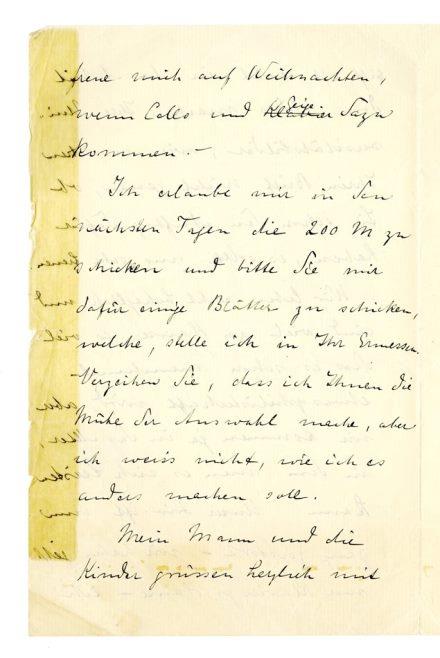 freue mich auf Weihnachten,
wenn Cello und Geige dazu
kommen. –
Ich erlaube mir in den
nächsten Tagen die 200 M zu
schicken und bitte Sie mir
dafür einige Blätter zu schicken,
welche, stelle ich in Ihr Ermessen.
Verzeihen Sie, dass ich Ihnen die
Mühe der Auswahl mache, aber
ich weiss nicht, wie ich es
anders machen soll.
Mein Mann und die
Kinder grüssen herzlich mit